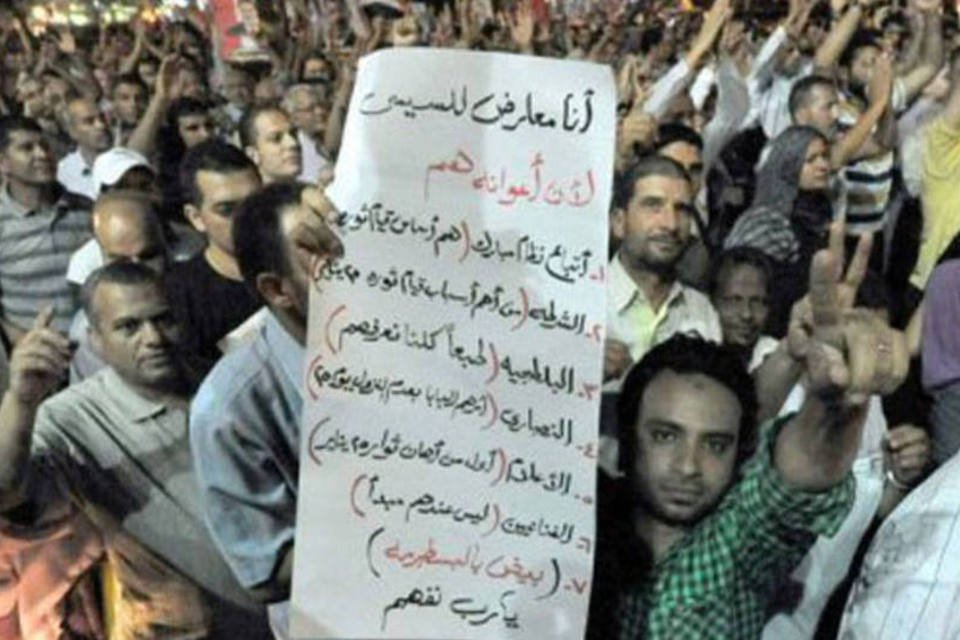 أنا معارض للسيسي
لأن أعوانه هم
١- أتباع نظام مبارك (هم أساس قيام ثوره
٢- الشرطه (من أهم أسباب قيام ثوره ٢٥ يناير)
٣- البلطجيه (طبعاً كلنا نعرفهم)
٤- النصاري (أمرهم البابا بعدم النزول يوم ٢٥)
٥- الأعلام (أول من أهان ثوار ٢٥ يناير)
٦- الفنانيون (ليس عندهم مبدأ)
٧- (يبقى بالمسطرية)
يارب نفهم